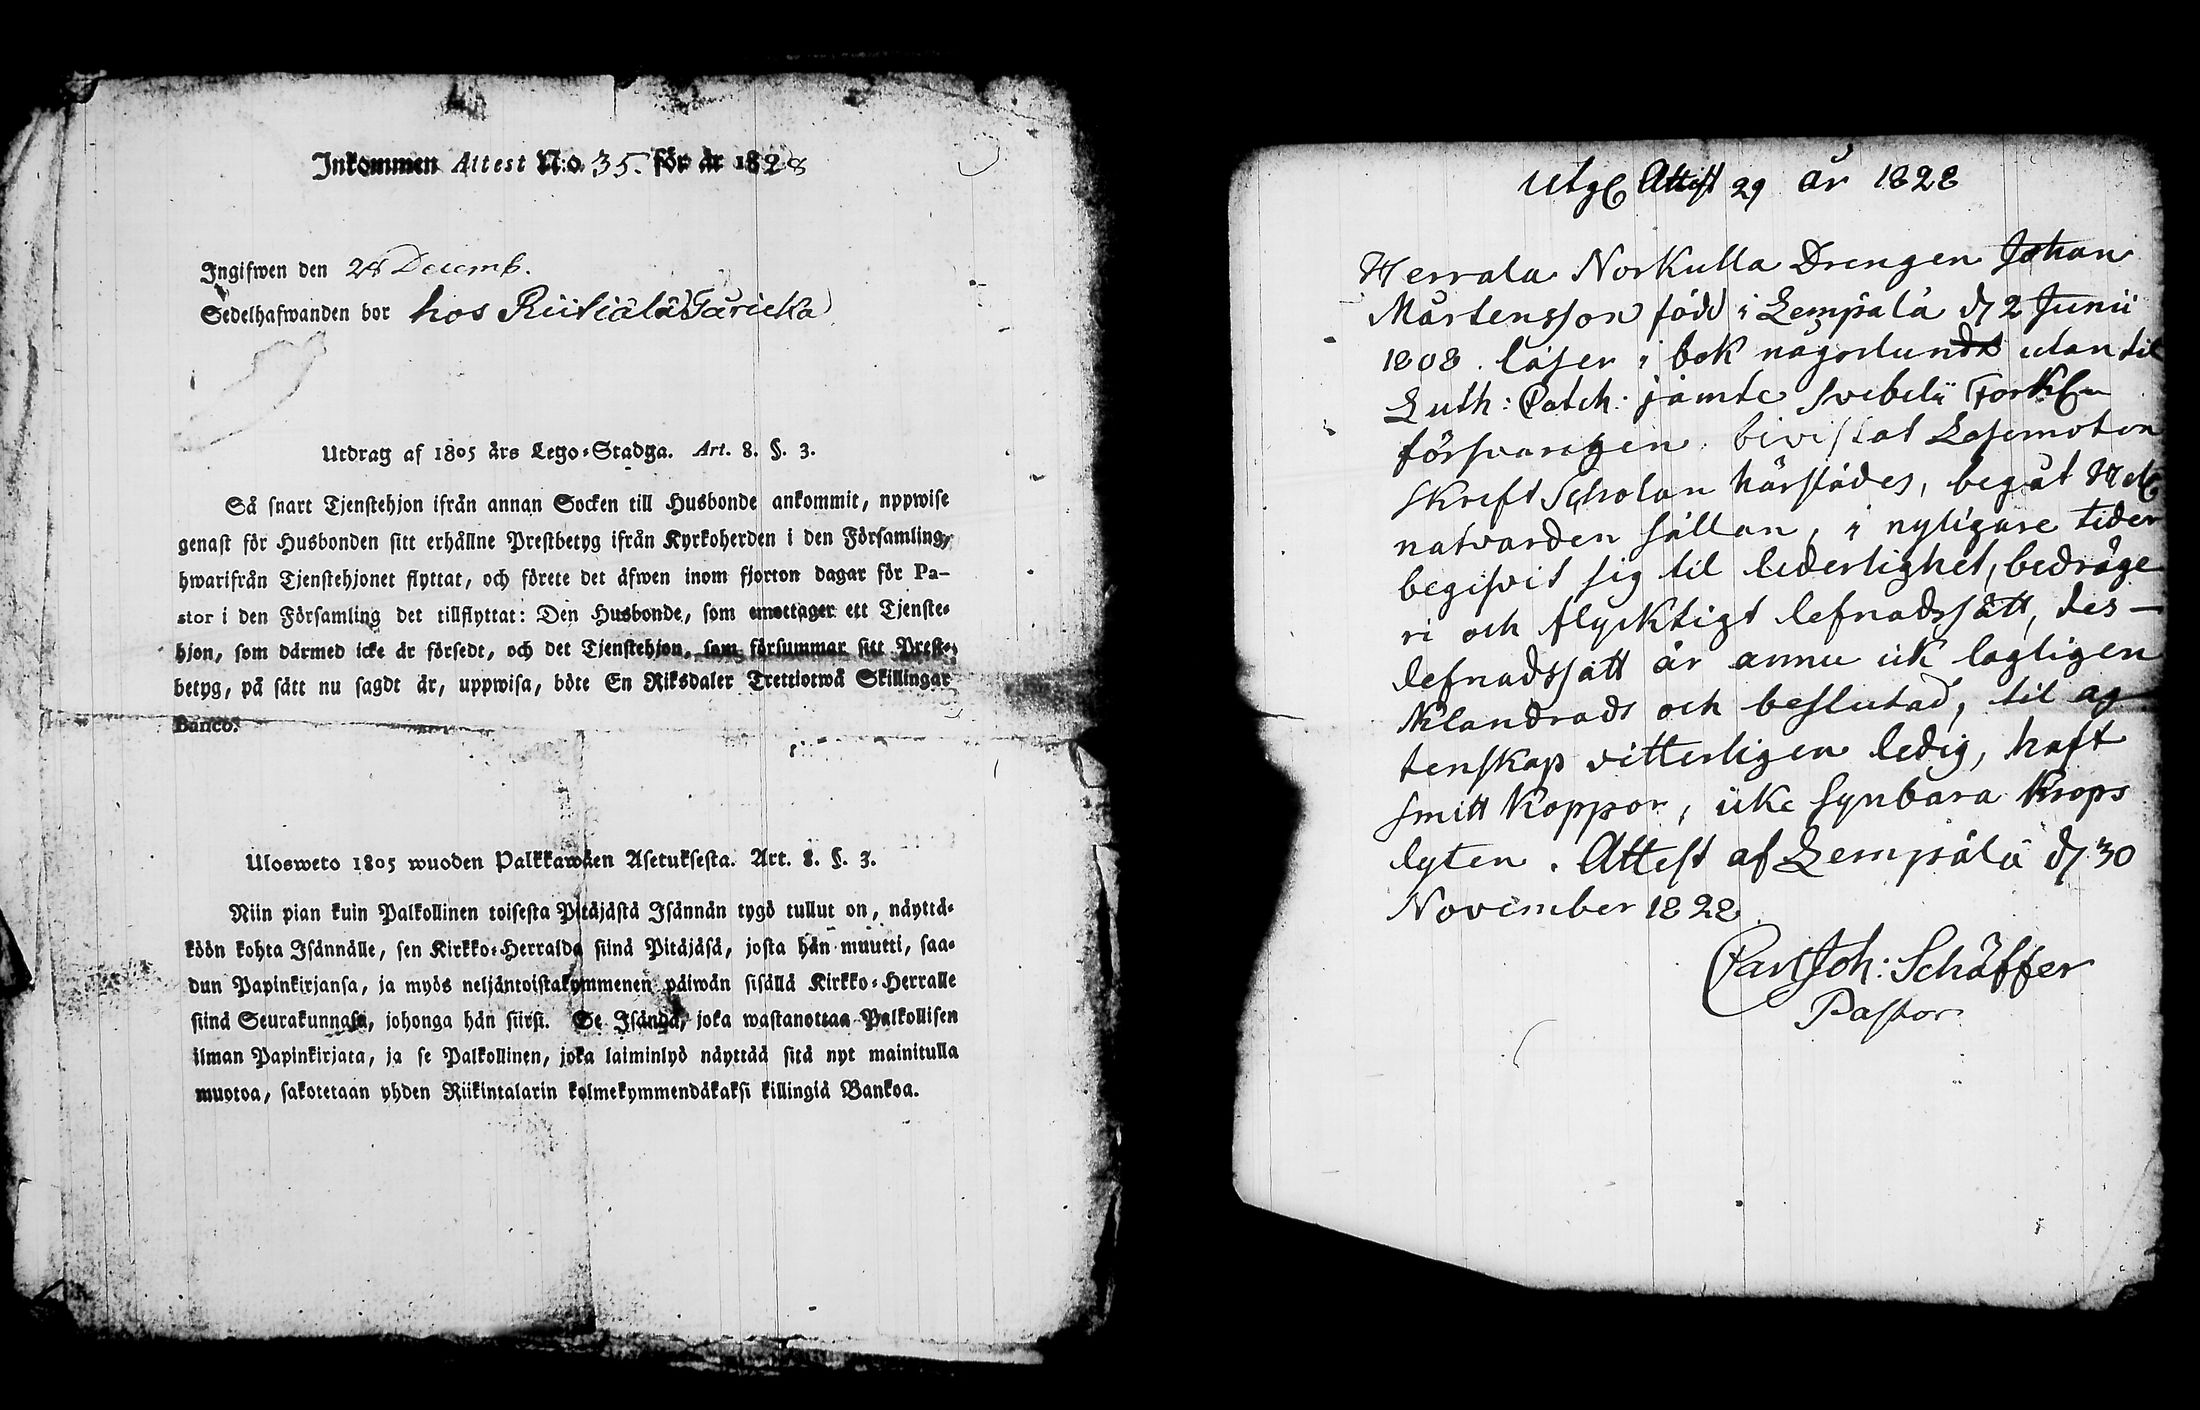 Inkommen Attest N:o 35. för år 1828
Ingifwen den 28 Decemb.
Sedelhafwanden bor hos Riitiälä Yaricka
Utdrag af 1805 års Lego-Stadga. Art. 8. §. 3.
Så snart Tjenstehjon ifrån annan Socken till Husbonde ankommit, uppwise
genast för Husbonden sitt erhållne Prestbetyg ifrån Kyrkoherden i den Församling,
hwarifrån Tjenstehjonet flyttat, och förete det äfwen inom fjorton dagar för Pa-
stor i den Församling det tillflyttat: Den Husbonde, som emottager ett Tjenste-
hjon, som därmed icke är försedt, och det Tjenstehjon, som försummar sitt Prest-
betyg, på sätt nu sagdt är, uppwisa, böte En Riksdaler Trettiotwå Skillingar
Banco.
Ulosweto 1805 wuoden Palkkawäen Asetuksesta. Art. 8. §. 3.
Niin pian kuin Palkollinen toisesta Pitäjästä Isännän tygö tullut on, näyttä-
köön kohta Isännälle, sen Kirkko-Herralda siinä Pitäjäsä, josta hän muutti, saa-
dun Papinkirjansa, ja myös neljäntoistakymmenen päiwän sisällä Kirkko-Herralle
siinä Seurakunnasa, johonga hän siirsi. Se Isändä, joka wastanottaa Palkollisen
ilman Papinkirjata, ja se Palkollinen, joka laiminlyö näyttää sitä nyt mainitulla
muotoa, sakotetaan yhden Riikintalarin kolmekymmendäkaksi killingiä Bankoa.
Utg Attest 29 år 1828
Herrala Norkulla Drengen Johan
Mårtensson född i Lempälä d 2 Junii
1808. läser i bok någorlunda utan til
Luth: Catch: jämte Svebelii Forkl
försvarligen. bivistat Läsemoten
Skrift Scholan härstädes, begåt H
natvarden sällan, i nyligare tider
begifvit sig til liderlighet, bedräge
ri och flycktigt lefnadssätt, des -
lefnadssätt är ännu ick lagligen
klandrads och beslutad, til äg
tenskap vitterligen ledig, haft
Smitt Koppor, icke Synbara Krops
lyten. Attest af Lempälä d 30
November 1828.
Carl Joh: Schäffer
Pastor